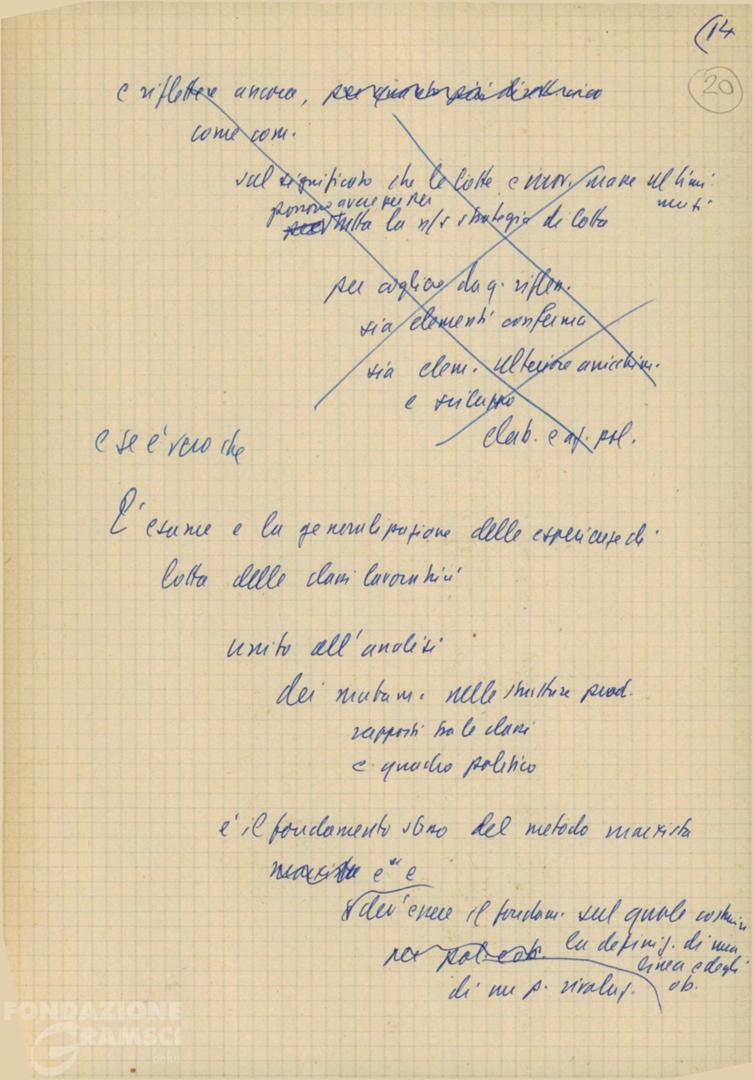 (14
20
e riflettere ancora,
come com.
sul significato che le lotte e mov. masse ultimi
possono avere per
tutta la n/s strategia di lotta
per cogliere da q. rifless.
sia elementi conferma
sia elem. ulteriore arricchim.
e sviluppo
elab. e az. pol.
e se è vero che
L'esame e la generalizzazione delle esperienze di
lotta delle classi lavoratrici
unito all'analisi
dei mutam. nelle strutture prod.
rapporti tra le classi
e quadro politico
è il fondamento stesso del metodo marxista
marxista è" e
dev'essere il fondam. sul quale costruire
la definiz. di una
linea e degli
di un p. rivoluz. ob.
FONDAZIONE
GRAMSCI